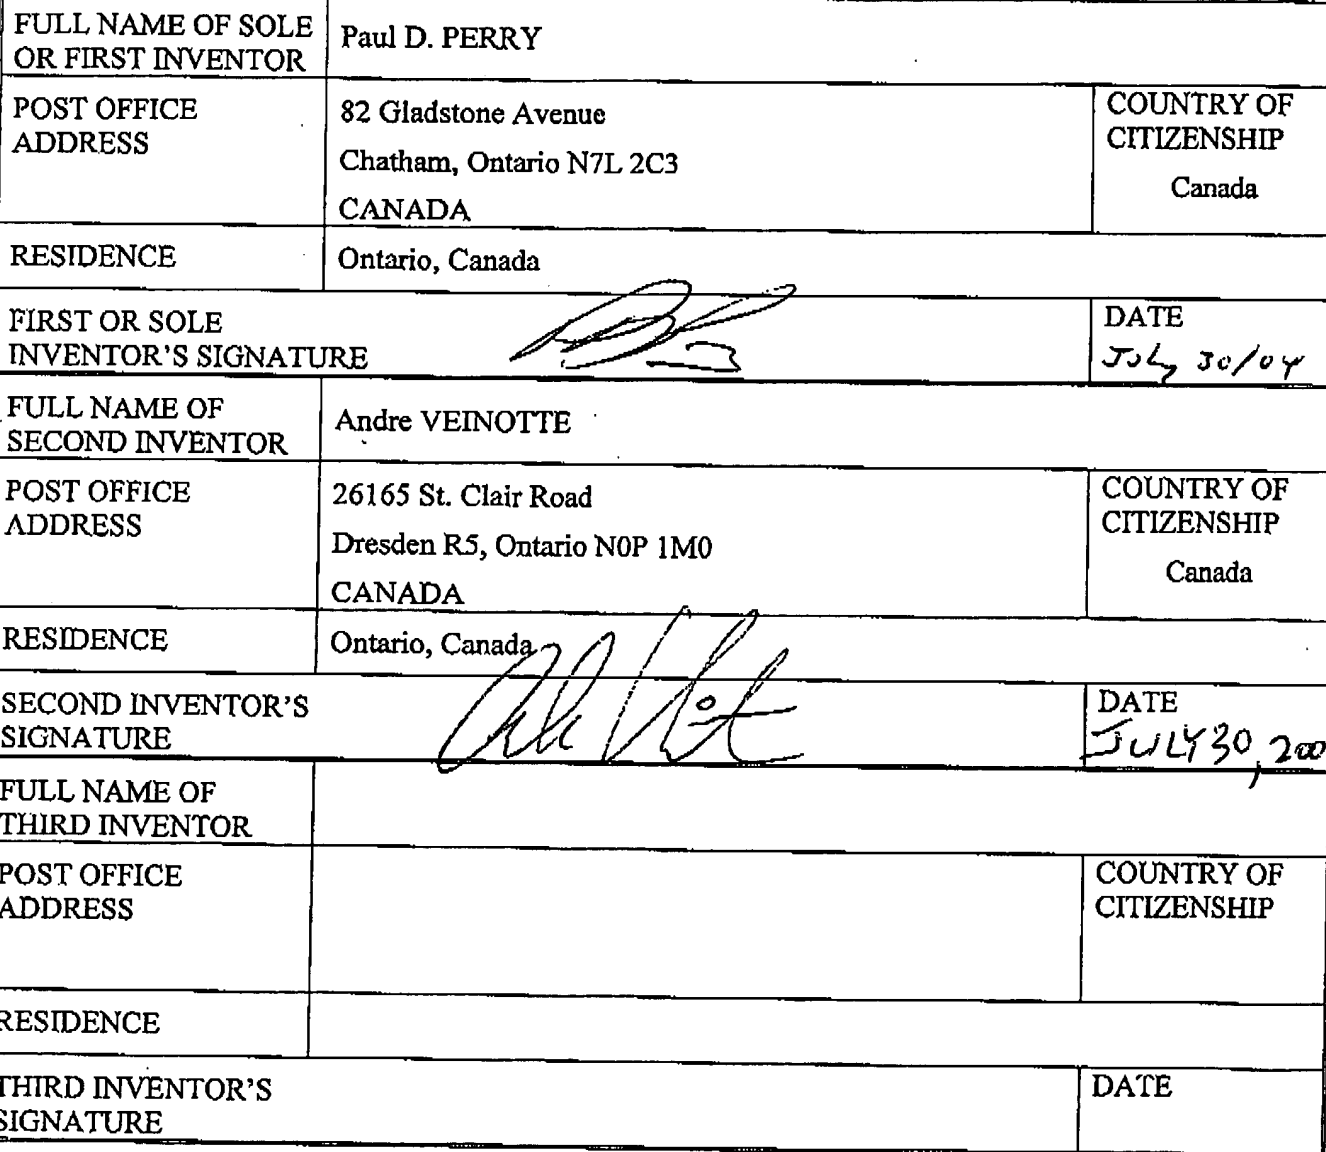 FULL NAME OF SOLE
OR FIRST INVENTOR
Paul D. PERRY
POST OFFICE
ADDRESS
82 Gladstone Avenue
Chatham, Ontario N7L 2C3
CANADA
COUNTRY OF
CITIZENSHIP
Canada
RESIDENCE
Ontario, Canada
FIRST OR SOLE
INVENTOR'S SIGNATURE
DATE
July 30/04
FULL NAME OF
SECOND INVENTOR
Andre VEINOTTE
POST OFFICE
ADDRESS
26165 St. Clair Road
Dresden R5, Ontario N0P 1M0
CANADA
COUNTRY OF
CITIZENSHIP
Canada
RESIDENCE
Ontario, Canada
SECOND INVENTOR'S
SIGNATURE
DATE
JULY 30, 200
FULL NAME OF
THIRD INVENTOR
POST OFFICE
ADDRESS
COUNTRY OF
CITIZENSHIP
RESIDENCE
THIRD INVENTOR'S
SIGNATURE
DATE